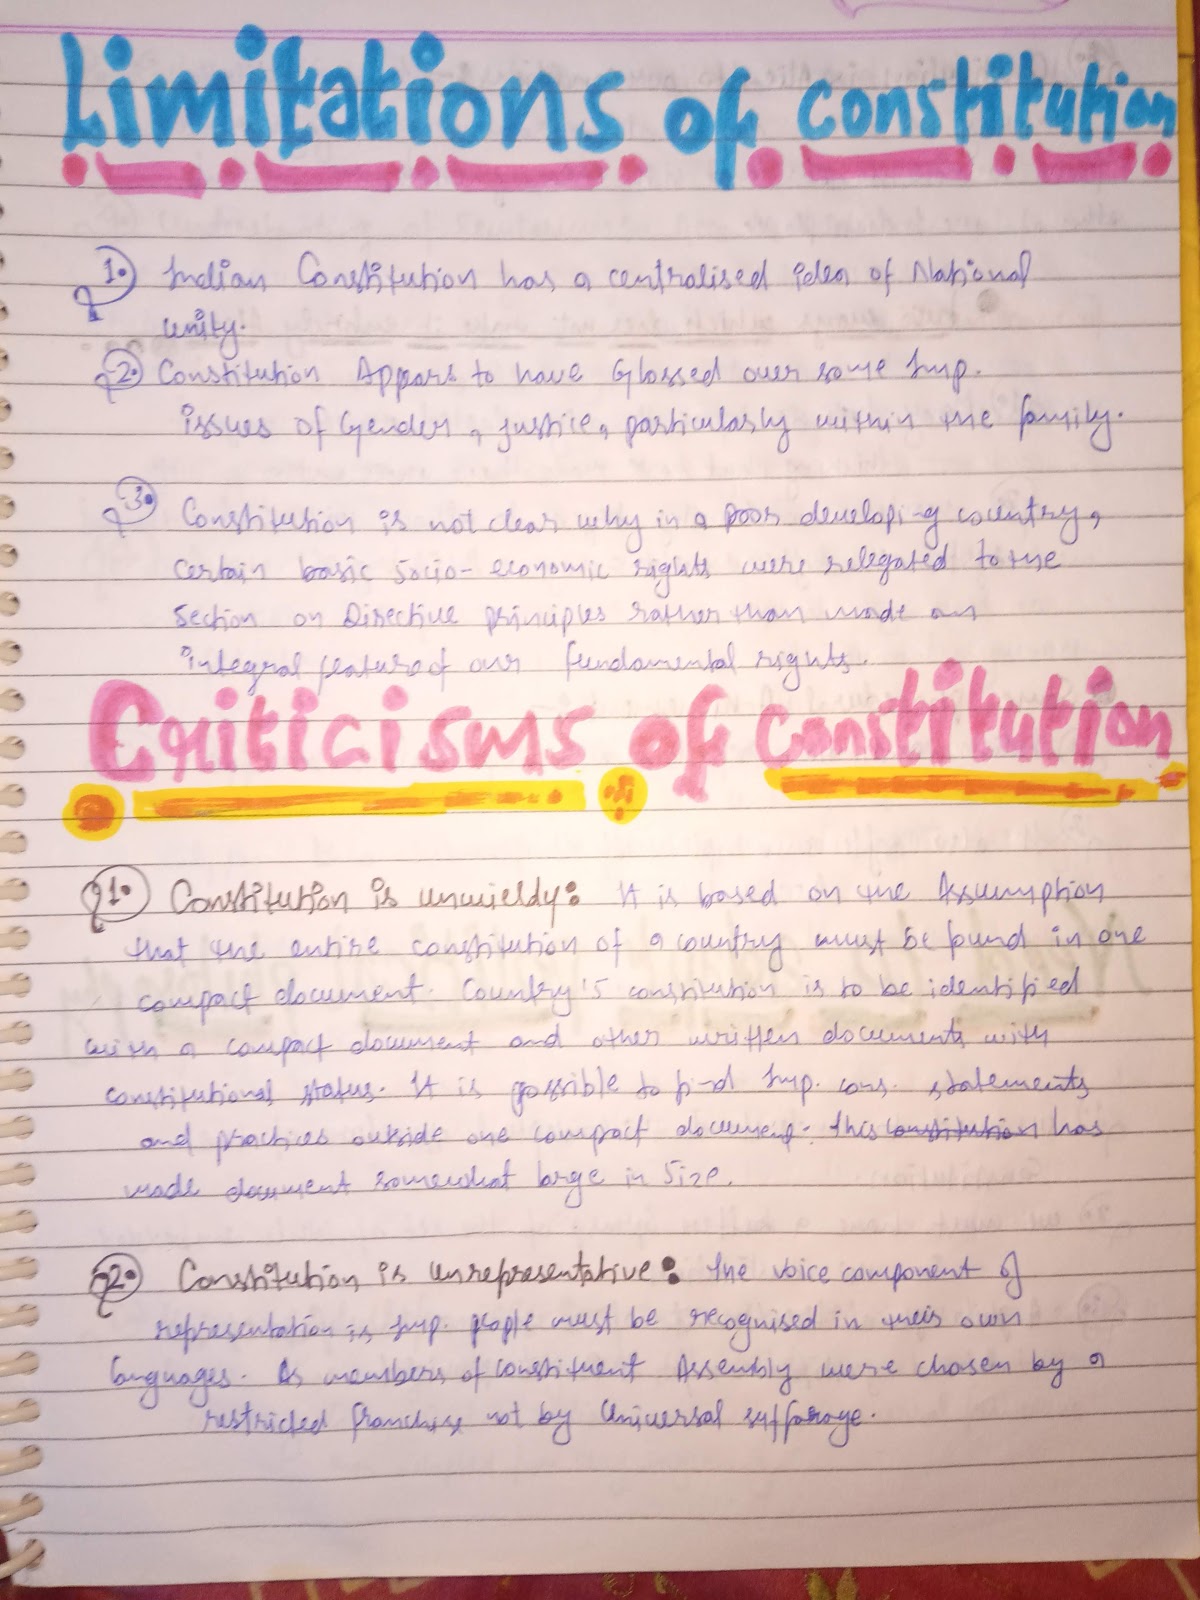 Limitations of Constitution
1. Indian Constitution has a centralised idea of National
unity.
2. Constitution Appears to have Glossed over some Imp.
issues of Gender, justice, particularly within the family.
3. Constitution is not clear why in a poor developing country,
certain basic socio-economic rights were relegated to the
section on Directive principles rather than made an
integral feature of our fundamental rights.
Criticisms of Constitution
1. Constitution is unwieldy: It is based on the Assumption
that the entire constitution of a country must be found in one
compact document. Country's constitution is to be identified
with a compact document and other written documents with
constitutional status. It is possible to find Imp. cons. statements
and practices outside one compact document. This constitution has
made document somewhat large in size.
2. Constitution is unrepresentative: The voice component of
representation is Imp. people must be recognised in their own
languages. As members of constituent Assembly were chosen by a
restricted franchise not by Universal suffarage.